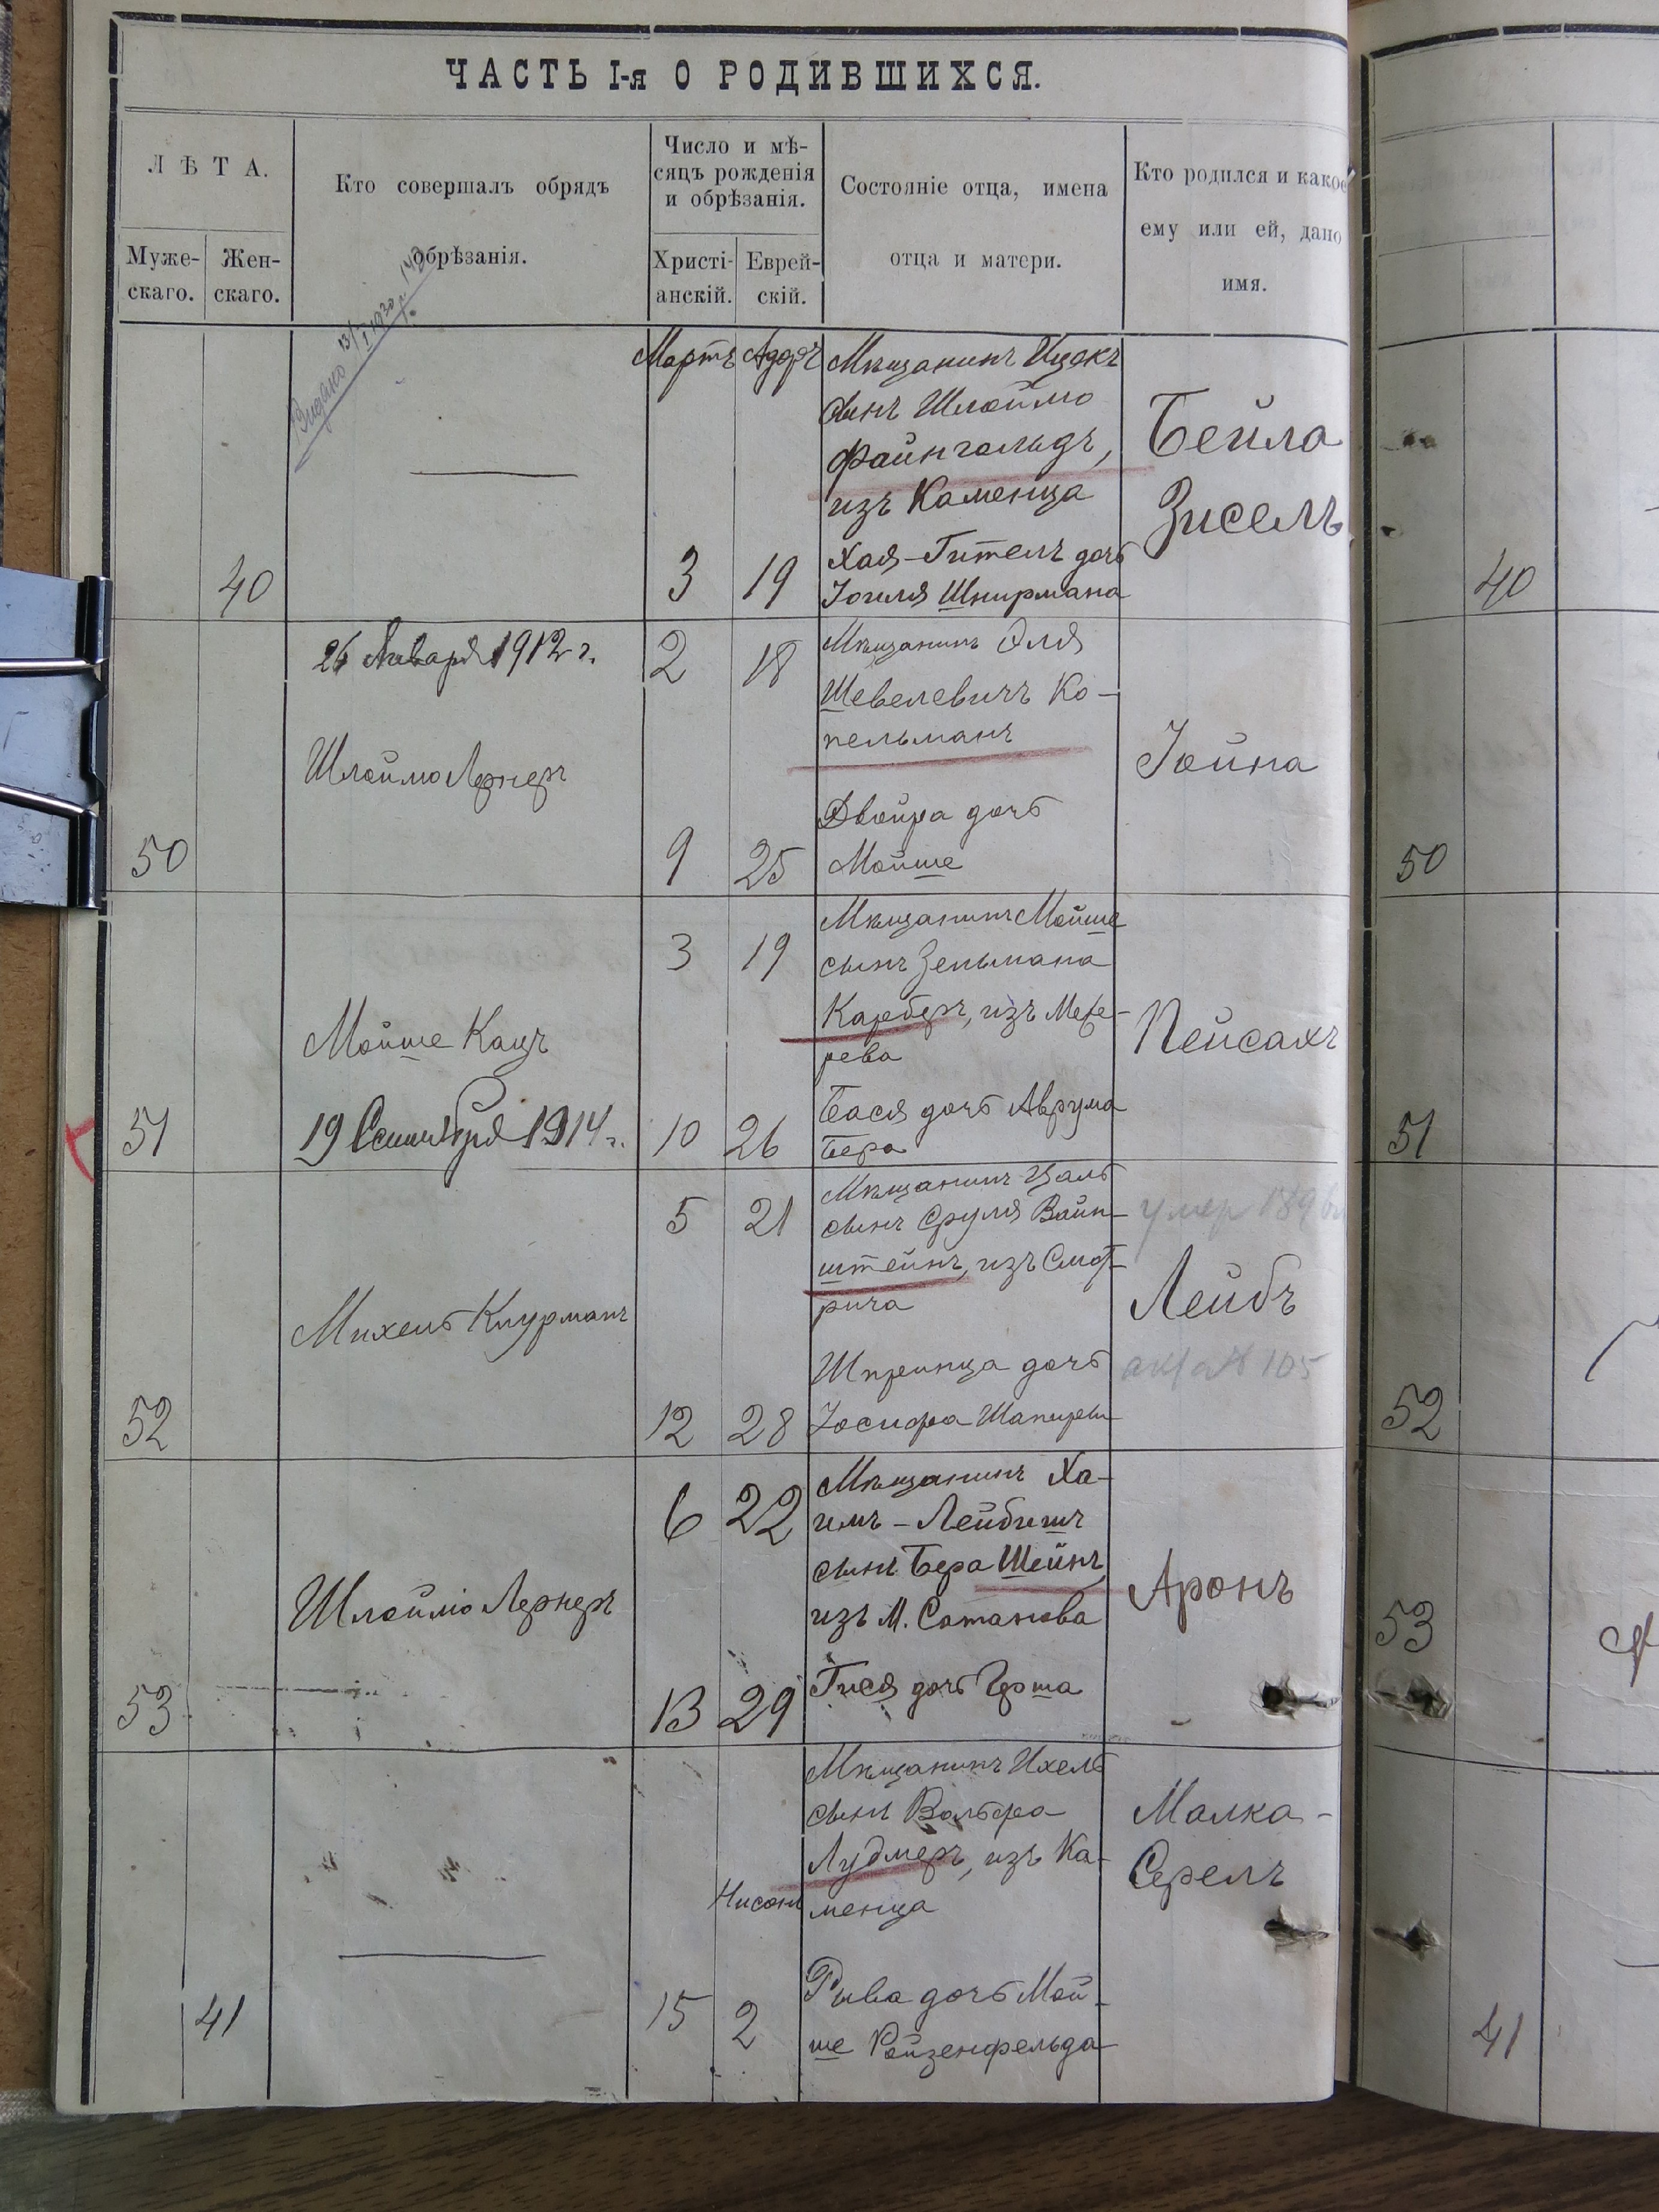 ЧАСТЬ I-я О РОДИВШИХСЯ.
ЛѢТА.
Муже-
скаго.
Жен-
скаго.
Кто совершалъ обрядъ
обрѣзанія.
Число и мѣ-
сяцъ рожденія
и обрѣзанія.
Христі-
анскій.
Еврей-
скій.
Состояніе отца, имена
отца и матери.
Кто родился и какое
ему или ей, дано
имя.
Видано 13/I 1930 р.
40
Мартъ
3
Адаръ
19
Мѣщанинъ Ицекъ
сынъ Шлоймо
Файнгольдъ,
изъ Каменца
Хая-Гителъ дочь
Іогиля Шнирмана
Бейла
Зиселъ
40
50
26 Января 1912 г.
Шлоймо Лернеръ
2
18
9
25
Мѣщанинъ Эля
Шевелевичъ Ко-
пельманъ
Двойра дочь
Мойше
Іойна
50
51
Мойше Кацъ
19 Сентября 1914 г.
3
19
10
26
Мѣщанинъ Мойше
сынъ Зельмана
Кербель, изъ
рева
Бася дочь Аврума
Бера
Пейсахъ
51
52
Михель Клурманъ
5
21
12
28
Мѣщанинъ Цаль
сынъ Сруля Вайн-
штейнъ, изъ Смот-
рича
Шпринца дочь
Іосифа
умер
Лейбъ
акт № 105
52
53
Шлоймо Лернеръ
6
22
13
29
Мѣщанинъ Ха-
имъ-Лейбишъ
сынъ Бера Шейнъ,
изъ м. Сатанова
Гися дочь Герша
Аронъ
53
41
15
Нисонъ
2
Мѣщанинъ Ихель
сынъ Вольфа
Лудмеръ, изъ Ка-
менца
Рива дочь Мой-
ше Ройзенфельда
Малка-
Серелъ
41